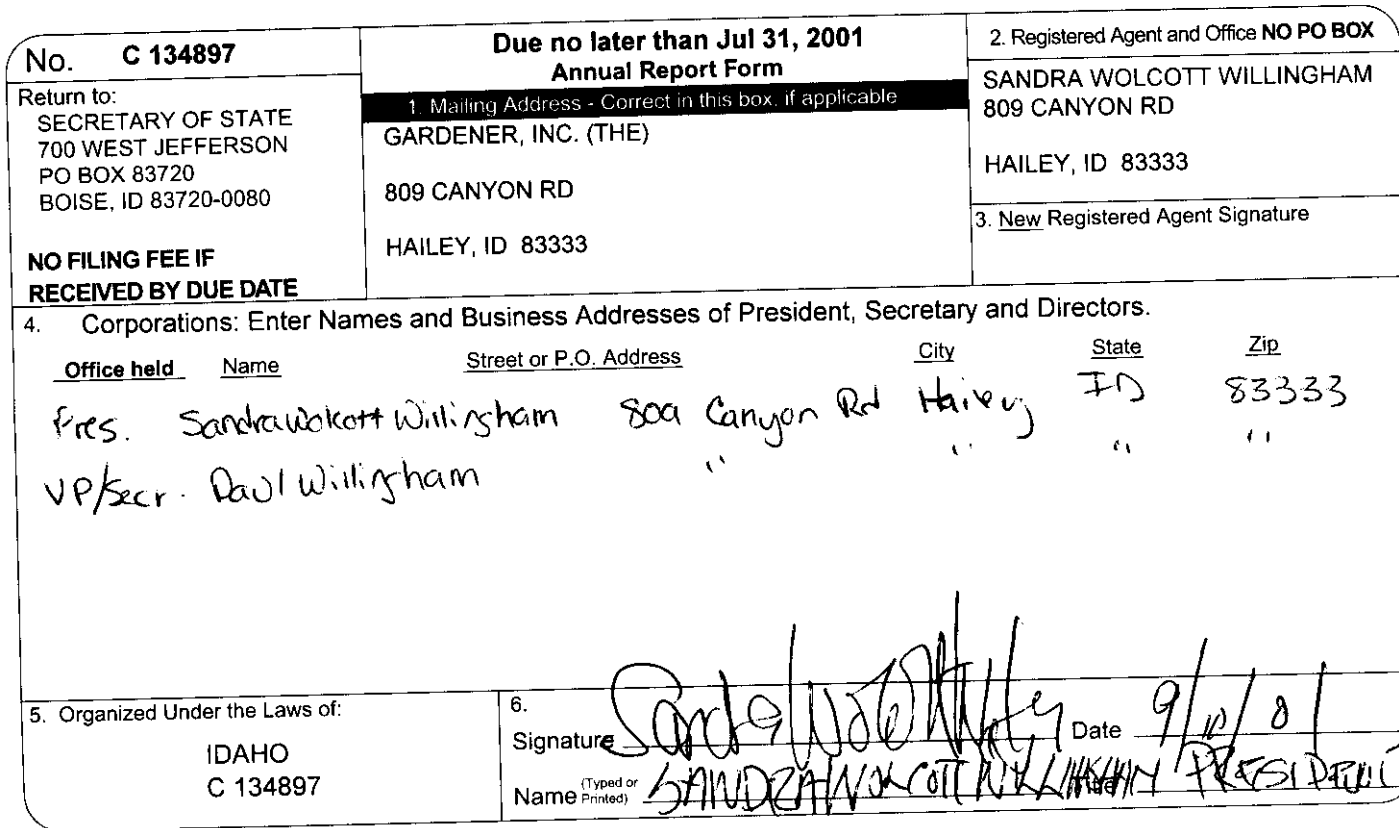 No. C 134897
Return to:
SECRETARY OF STATE
700 WEST JEFFERSON
PO BOX 83720
BOISE, ID 83720-0080
NO FILING FEE IF
RECEIVED BY DUE DATE
Due no later than Jul 31, 2001
Annual Report Form
1. Mailing Address - Correct in this box, if applicable
GARDENER, INC. (THE)
809 CANYON RD
HAILEY, ID 83333
2. Registered Agent and Office NO PO BOX
SANDRA WOLCOTT WILLINGHAM
809 CANYON RD
HAILEY, ID 83333
3. New Registered Agent Signature
4. Corporations: Enter Names and Business Addresses of President, Secretary and Directors.
Office held Name Street or P.O. Address City State Zip
Pres. Sandra Wolcott Willingham 809 Canyon Rd Hailey ID 83333
VP/Secr. Paul Willingham " " " "
5. Organized Under the Laws of:
IDAHO
C 134897
6.
Signature Date 9/10/01
Name (Typed or Printed) SANDRA WOLCOTT WILLINGHAM PRESIDENT